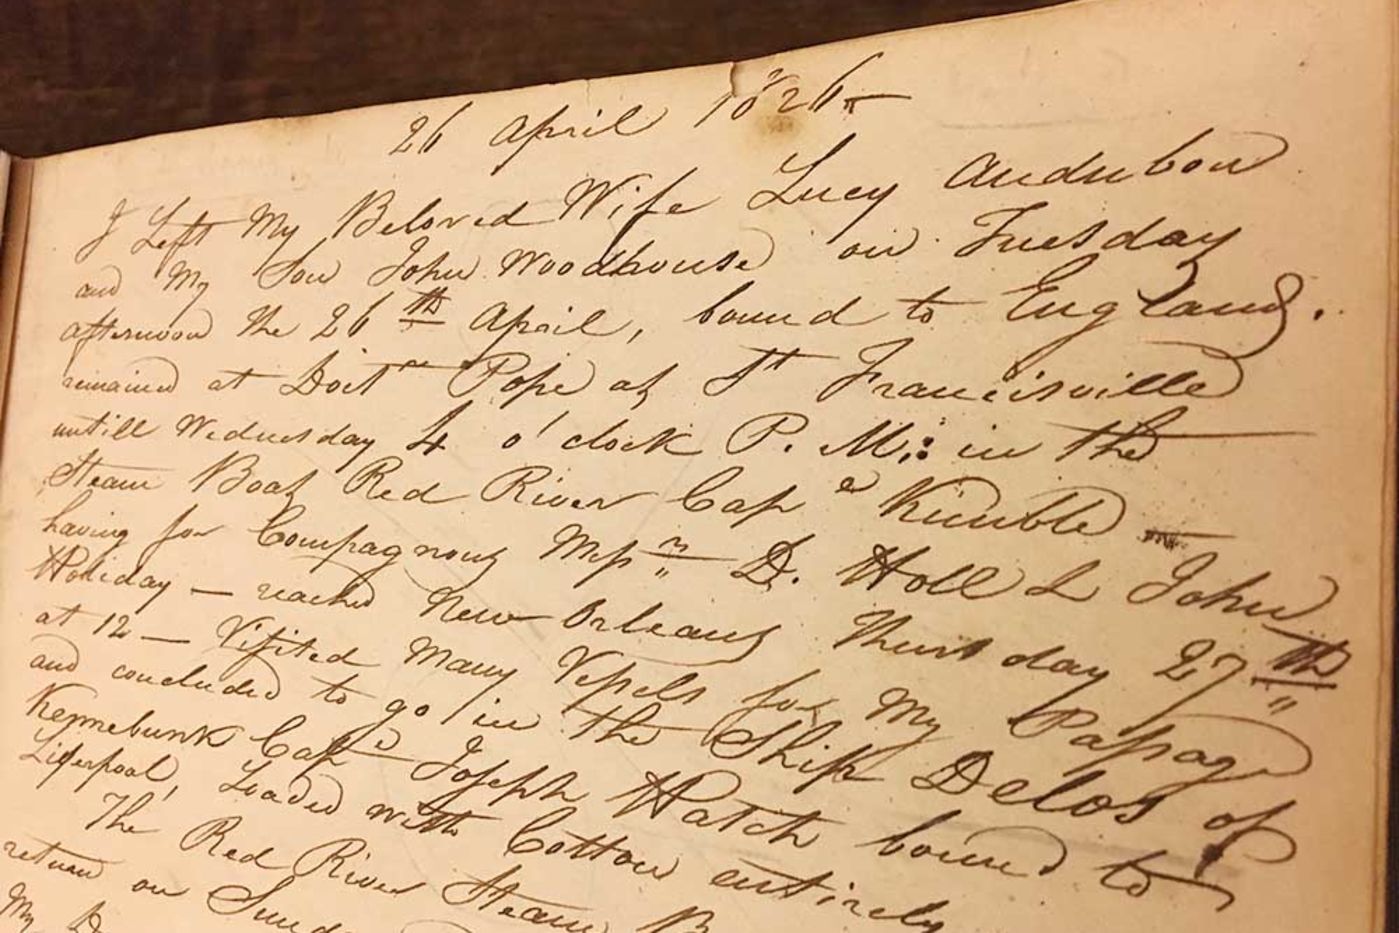 26 April 1826—
I Left My Beloved Wife Lucy Audubon
and My Son John Woodhouse on Tuesday
afternoon the 26th April, bound to England.
remained at Doctr Pope at St Francisville
untill Wednesday 4 o'clock P.M.: in the
Steam Boat Red River Cape Kimble—
having for Compagnons Messrs D. Holl & John
Holiday — reached New Orleans Thursday 27th
at 12 — Visited Many Vessels for My Passage
and concluded to go in the Ship Delos of
Kennebunk Cape Joseph Hatch bound to
Liverpool, Loaded with Cotton entirely
The Red River Steam B
return on Sund
My D